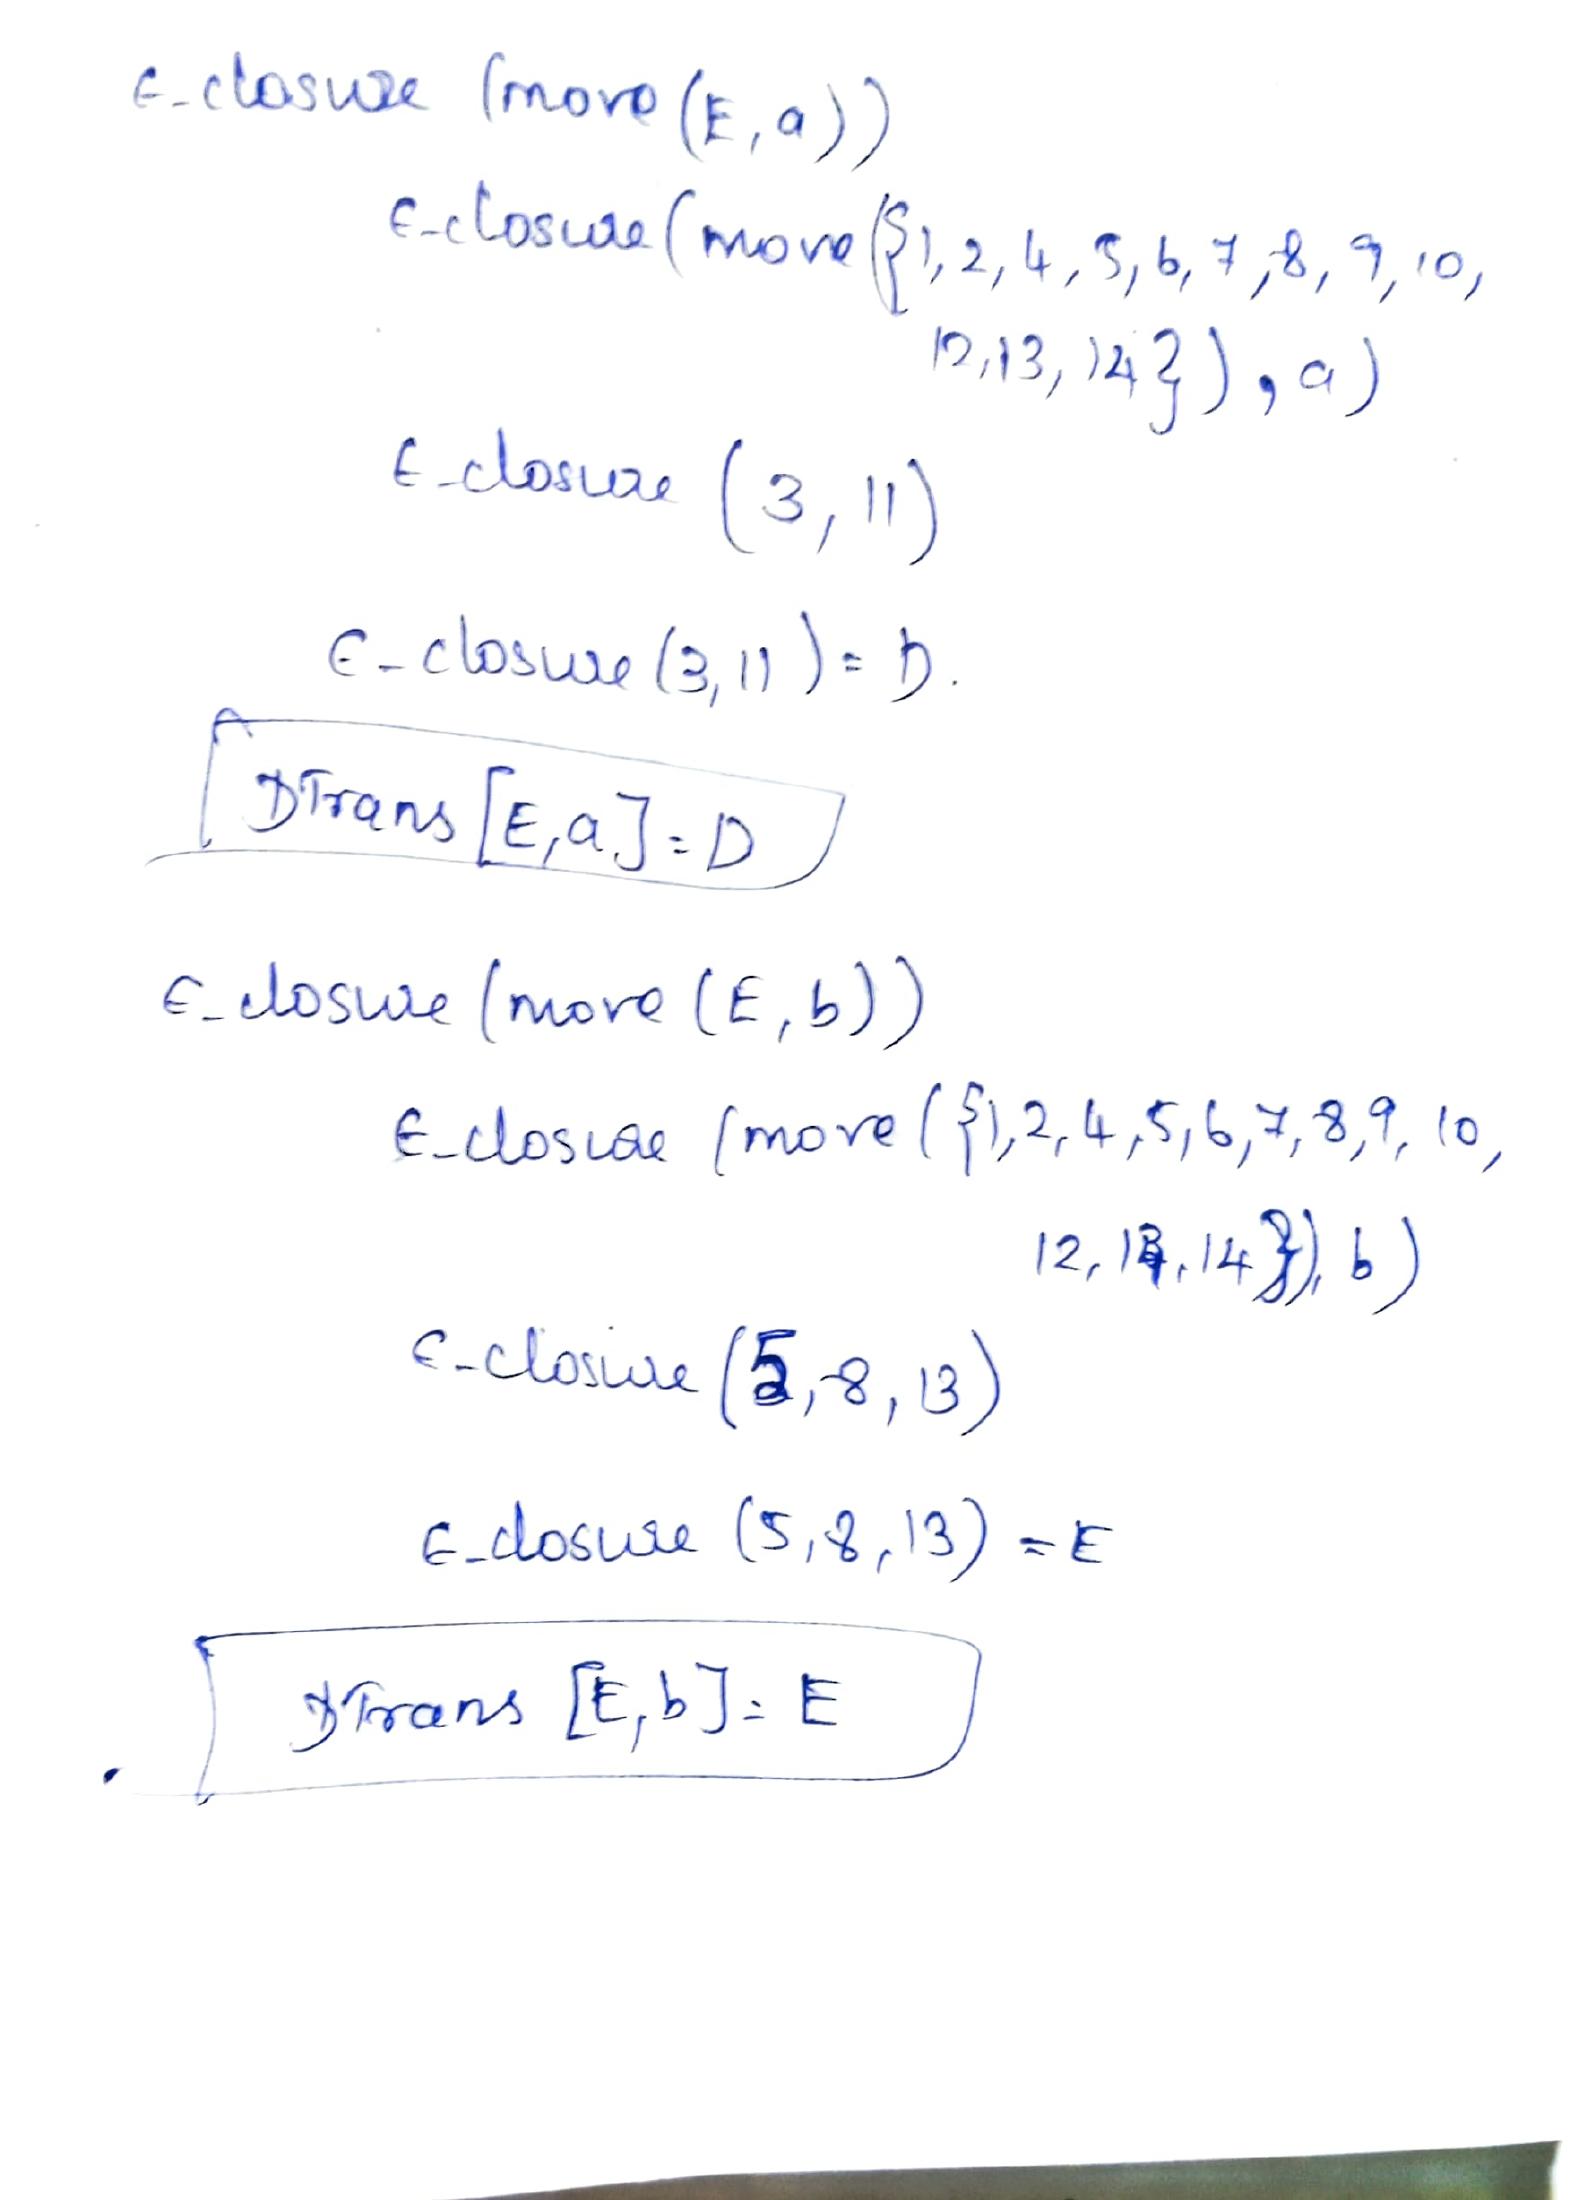 ε-closure (move (E, a))
ε-closure (move ({1, 2, 4, 5, 6, 7, 8, 9, 10,
12, 13, 14}), a)
ε-closure (3, 11)
ε-closure (3, 11) = D.
DTrans [E, a] = D
ε-closure (move (E, b))
ε-closure (move ({1, 2, 4, 5, 6, 7, 8, 9, 10,
12, 13, 14}), b)
ε-closure (5, 8, 13)
ε-closure (5, 8, 13) = E
DTrans [E, b] = E